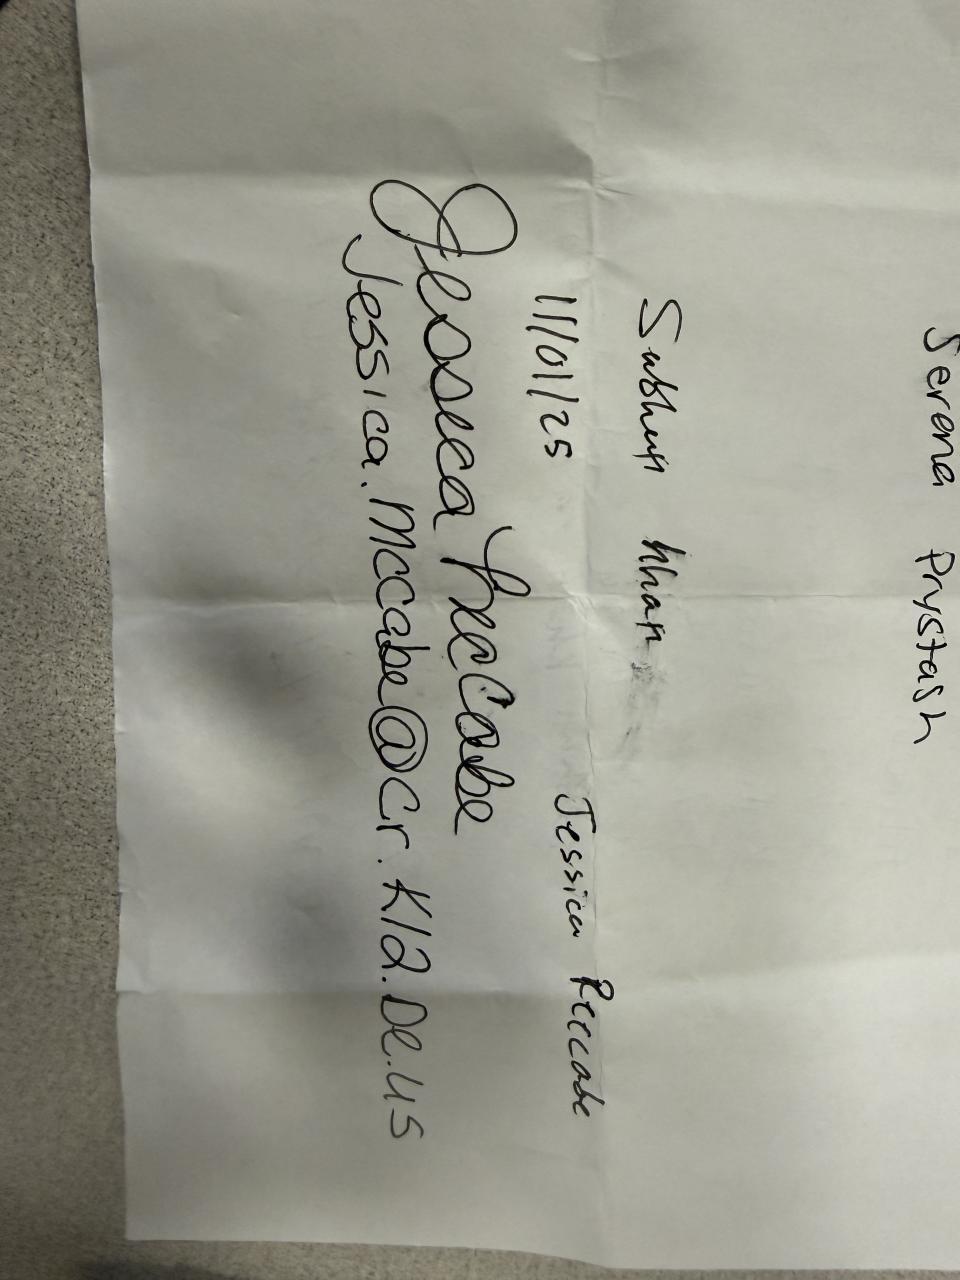 Serena Prystash
Subhan Khan
11/01/25 Jessica Reccabe
Jessica McCabe
Jessica.Mccabe@Cr.K12.De.us